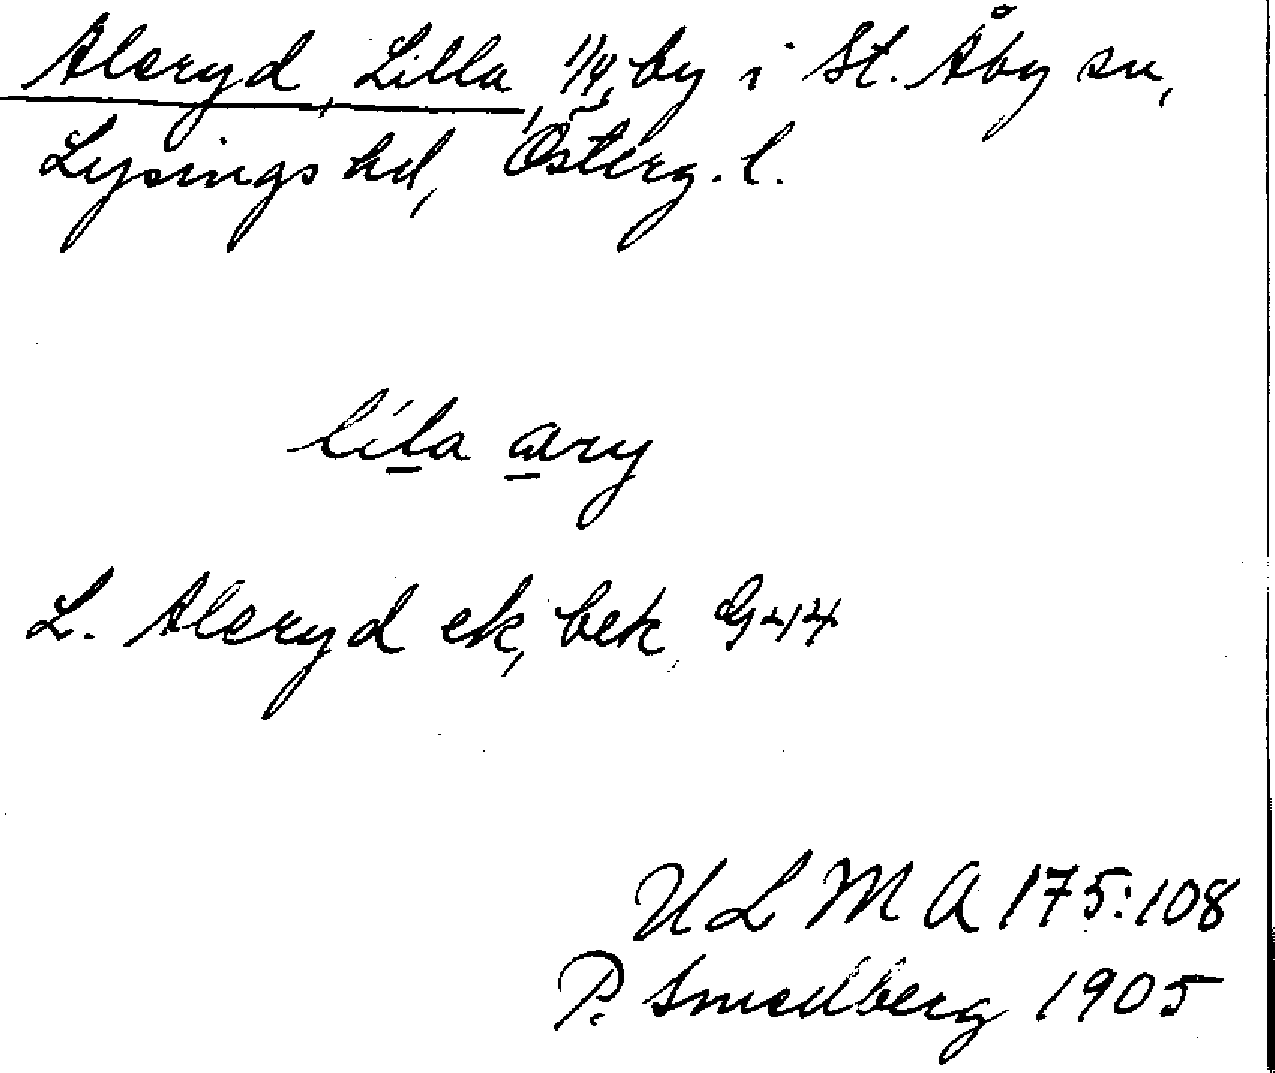 Aleryd, Lilla, 1/4, by i St. Åby sn,
Lysings hd, Österg. l.
líla ary
L. Aleryd ek, bek, G 44
U L M A 175:108
P. Smedberg 1905